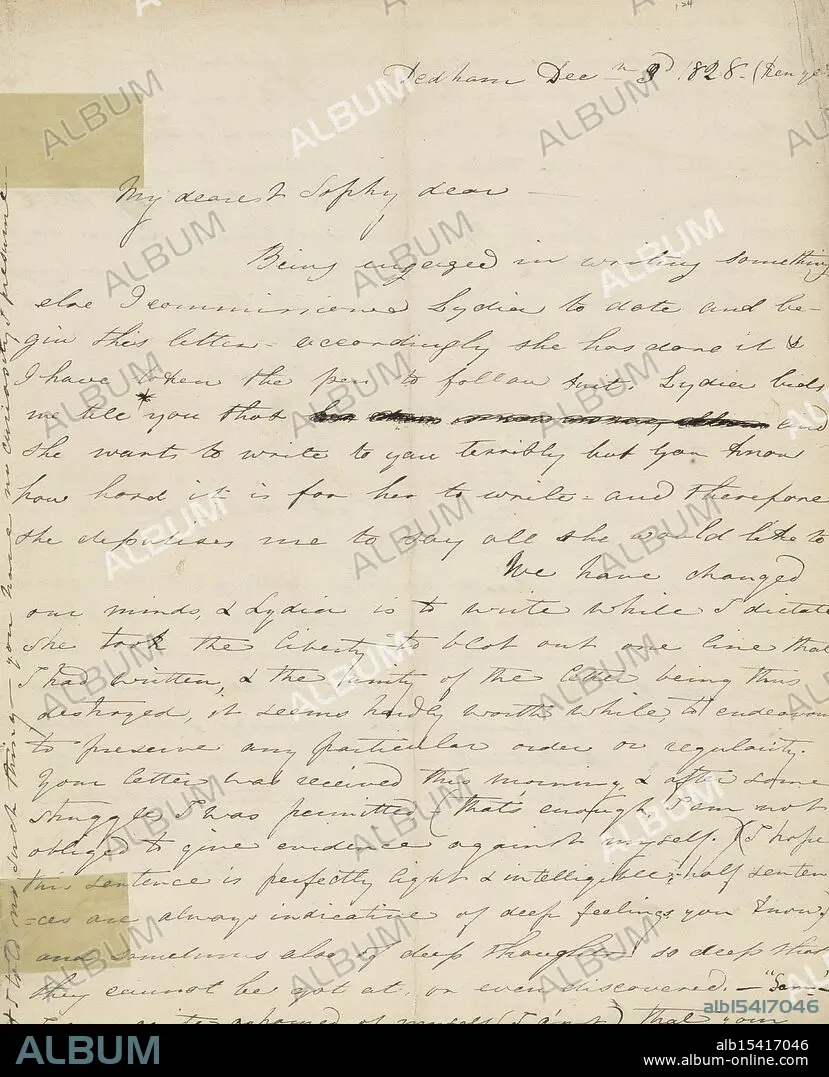 Dedham Dec 3d 1828.
My dearest Sophy dear —
Being engaged in writing something
else I commissioned Lydia to date and be-
gin this letter - accordingly she has done it &
I have taken the pen to follow suit. Lydia bids
me tell * you that and
she wants to write to you terribly but you know
how hard it is for her to write - and therefore
she deputises me to say all she would like to
We have changed
our minds, & Lydia is to write while I dictate
she took the liberty to blot out one line that
I had written, & the unity of the letter being thus
destroyed, it seems hardly worth while, to endeavour
to preserve any particular order or regularity.
Your letter was received this morning & after some
struggle I was permitted (that's enough, I am not
obliged to give evidence against myself.) (I hope
this sentence is perfectly light & intelligible; half senten
-ces are always indicative of deep feelings you know,)
and sometimes also of deep thoughts! so deep that
they cannot be got at, or even discovered. —
of myself (I a'nt) that your
no such thing — you have no curiosity I presume —
ALBUM
alb15417046
ALBUM
alb15417046
www.album-online.com